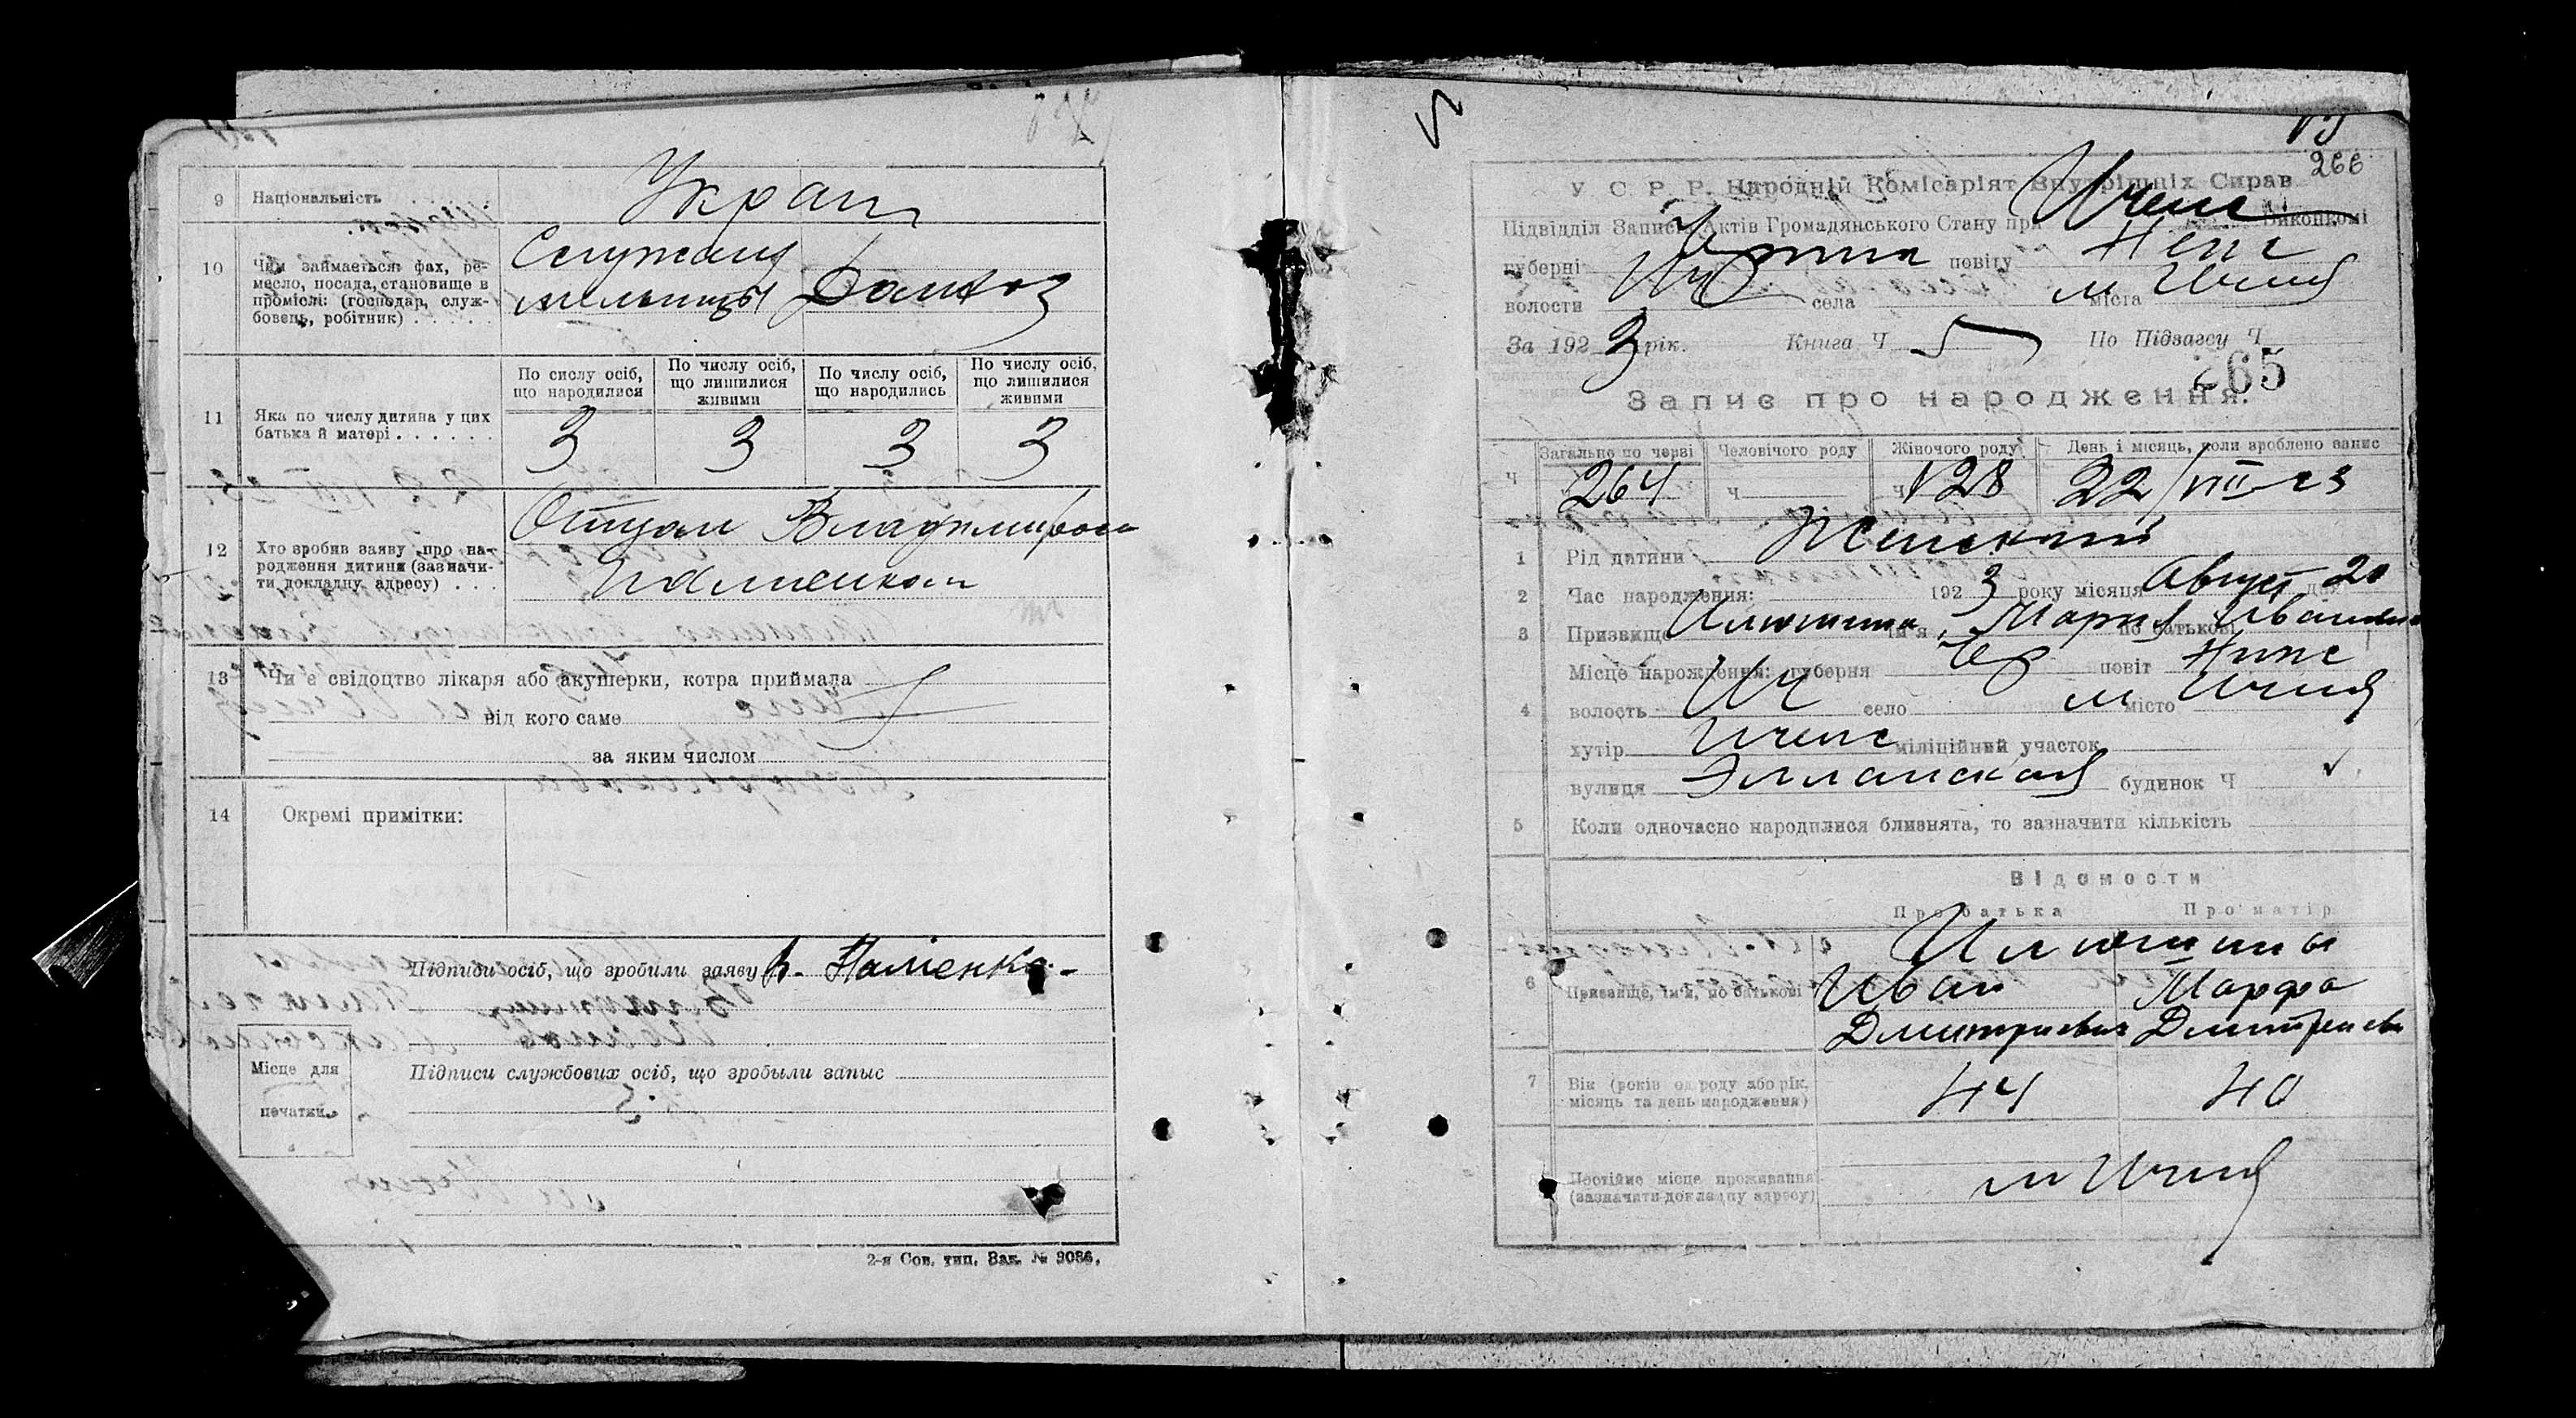 9 Національність
Украин
10 Чим займається: фах, ре-
месло, посада, становище в
проміслі: (господар, служ-
бовець, робітник)
Служащ
мельницы Домхоз
По сислу осіб, що народилися
По числу осіб, що лишилися живими
По числу осіб, що народились
По числу осіб, що лишилися живими
11 Яка по числу дитина у цих
батька й матері
3 3 3 3
12 Хто зробив заяву про на-
родження дитини (зазначи-
ти докладну адресу)
Отцом Владимиром
13 Чи є свідоцтво лікаря або акушерки, котра приймала
від кого саме
за яким числом
14 Окремі примітки:
Підписи осіб, що зробили заяву
Місце для
печатки
Підписи службових осіб, що зробыли запыс
2-я Сов. тип. Зак. № 3086.
266
У С Р Р. Народній Комісаріят Внутрішніх Справ
Підвідділ Запису Актів Громадянського Стану при Ичнс Виконкомі
губерні повіту
волости Ич села м міста Ичня
За 1923 рік. Книга Ч 5 По Підзагсу Ч
265
Запис про народження.
Загально по черзі Человічого роду Жіночого роду День і місяць, коли зроблено запис
Ч 264 Ч Ч 128 22/VIII-23
1 Рід дитини Женский
2 Час народження: 1923 року місяця Август 20 дня
3 Призвище Илюшина ім'я Мария по батькові Ивановна
4 Місце нарождення: губерня Чер повіт Ниж
волость Ич село м місто Ичня
хутір Ичнс міліційний участок
вулиця будинок Ч
5 Коли одночасно народилися близнята, то зазначити кількість
Відомости
Про батька Про матір
Илюшины
6 Призвище, ім'я, по батькові Иван Марфа
Дмитриевич Дмитриевн
7 Вік (років од роду або рік,
місяць та день народження) 44 40
Постійне місце проживання
(зазначити докладну адресу) м Ичня